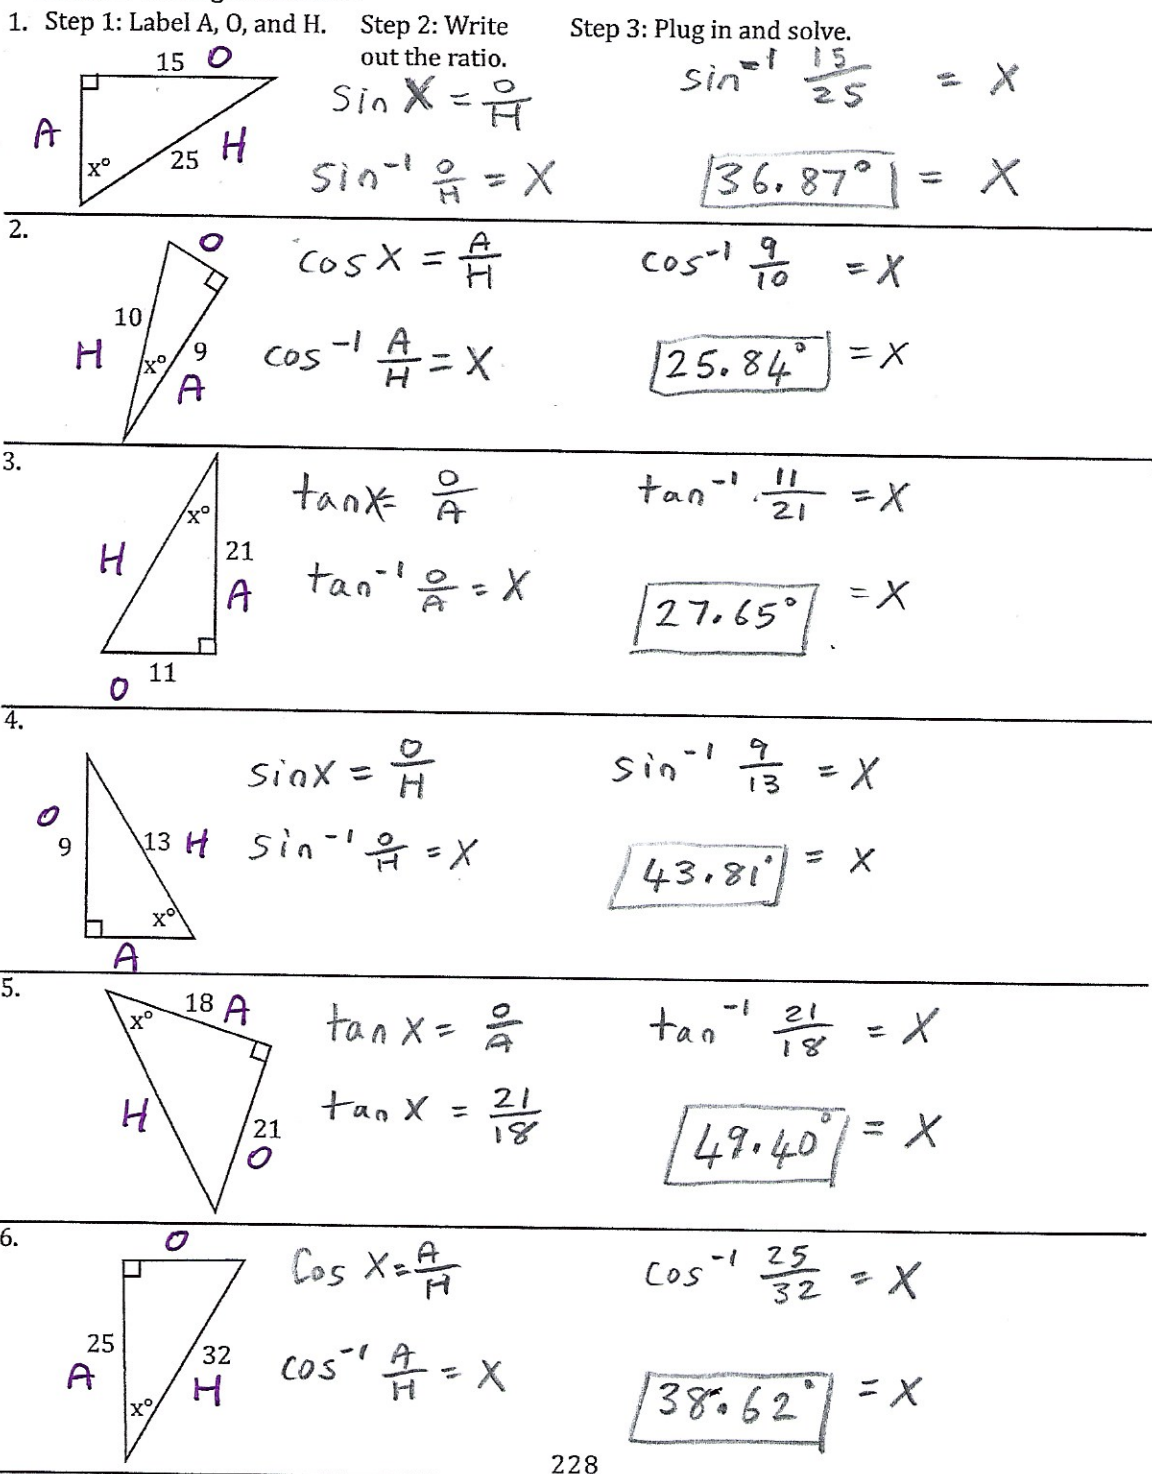 1. Step 1: Label A, O, and H. Step 2: Write out the ratio. Step 3: Plug in and solve.
15 O
A
x°
25 H
sin X = O/H
sin⁻¹ O/H = X
sin⁻¹ 15/25 = X
36.87° = X
2.
O
10
H
x°
9
A
cos X = A/H
cos⁻¹ A/H = X
cos⁻¹ 9/10 = X
25.84° = X
3.
x°
H
21
A
11
O
tan X = O/A
tan⁻¹ O/A = X
tan⁻¹ 11/21 = X
27.65° = X
4.
O
9
13 H
x°
A
sin X = O/H
sin⁻¹ O/H = X
sin⁻¹ 9/13 = X
43.81° = X
5.
18 A
x°
H
21
O
tan X = O/A
tan X = 21/18
tan⁻¹ 21/18 = X
49.40° = X
6.
O
25
A
32
H
x°
Cos X = A/H
cos⁻¹ A/H = X
cos⁻¹ 25/32 = X
38.62° = X
228